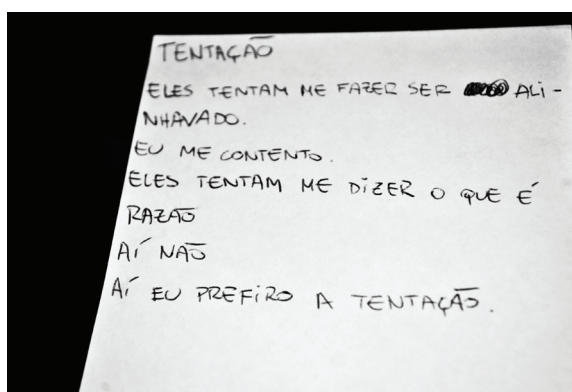 TENTAÇÃO
ELES TENTAM ME FAZER SER ALI-
NHAVADO.
EU ME CONTENTO.
ELES TENTAM ME DIZER O QUE É
RAZÃO
AÍ NÃO
AÍ EU PREFIRO A TENTAÇÃO.